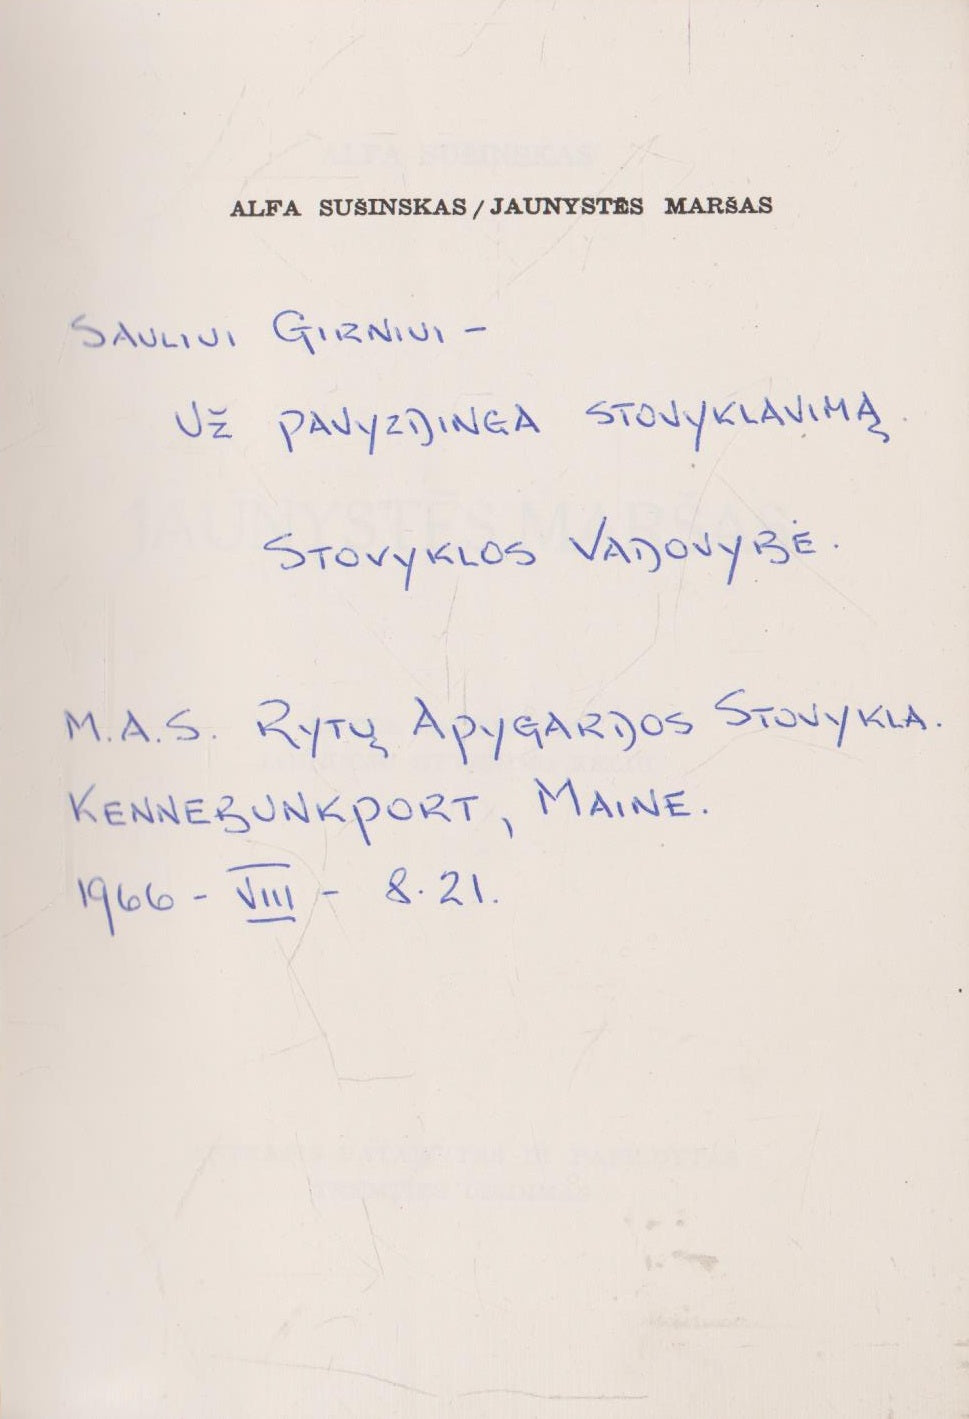 ALFA SUŠINSKAS / JAUNYSTĖS MARŠAS
SAULIUI GIRNIUI –
UŽ PAVYZDINGA STOVYKLAVIMĄ.
STOVYKLOS VADOVYBĖ.
M.A.S. RYTŲ APYGARDOS STOVYKLA.
KENNEBUNKPORT, MAINE.
1966 - VIII - 8.21.